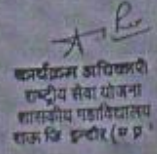 कार्यक्रम अधिकारी
राष्ट्रीय सेवा योजना
शासकीय महाविद्यालय
राऊ जि इन्दौर (म प्र